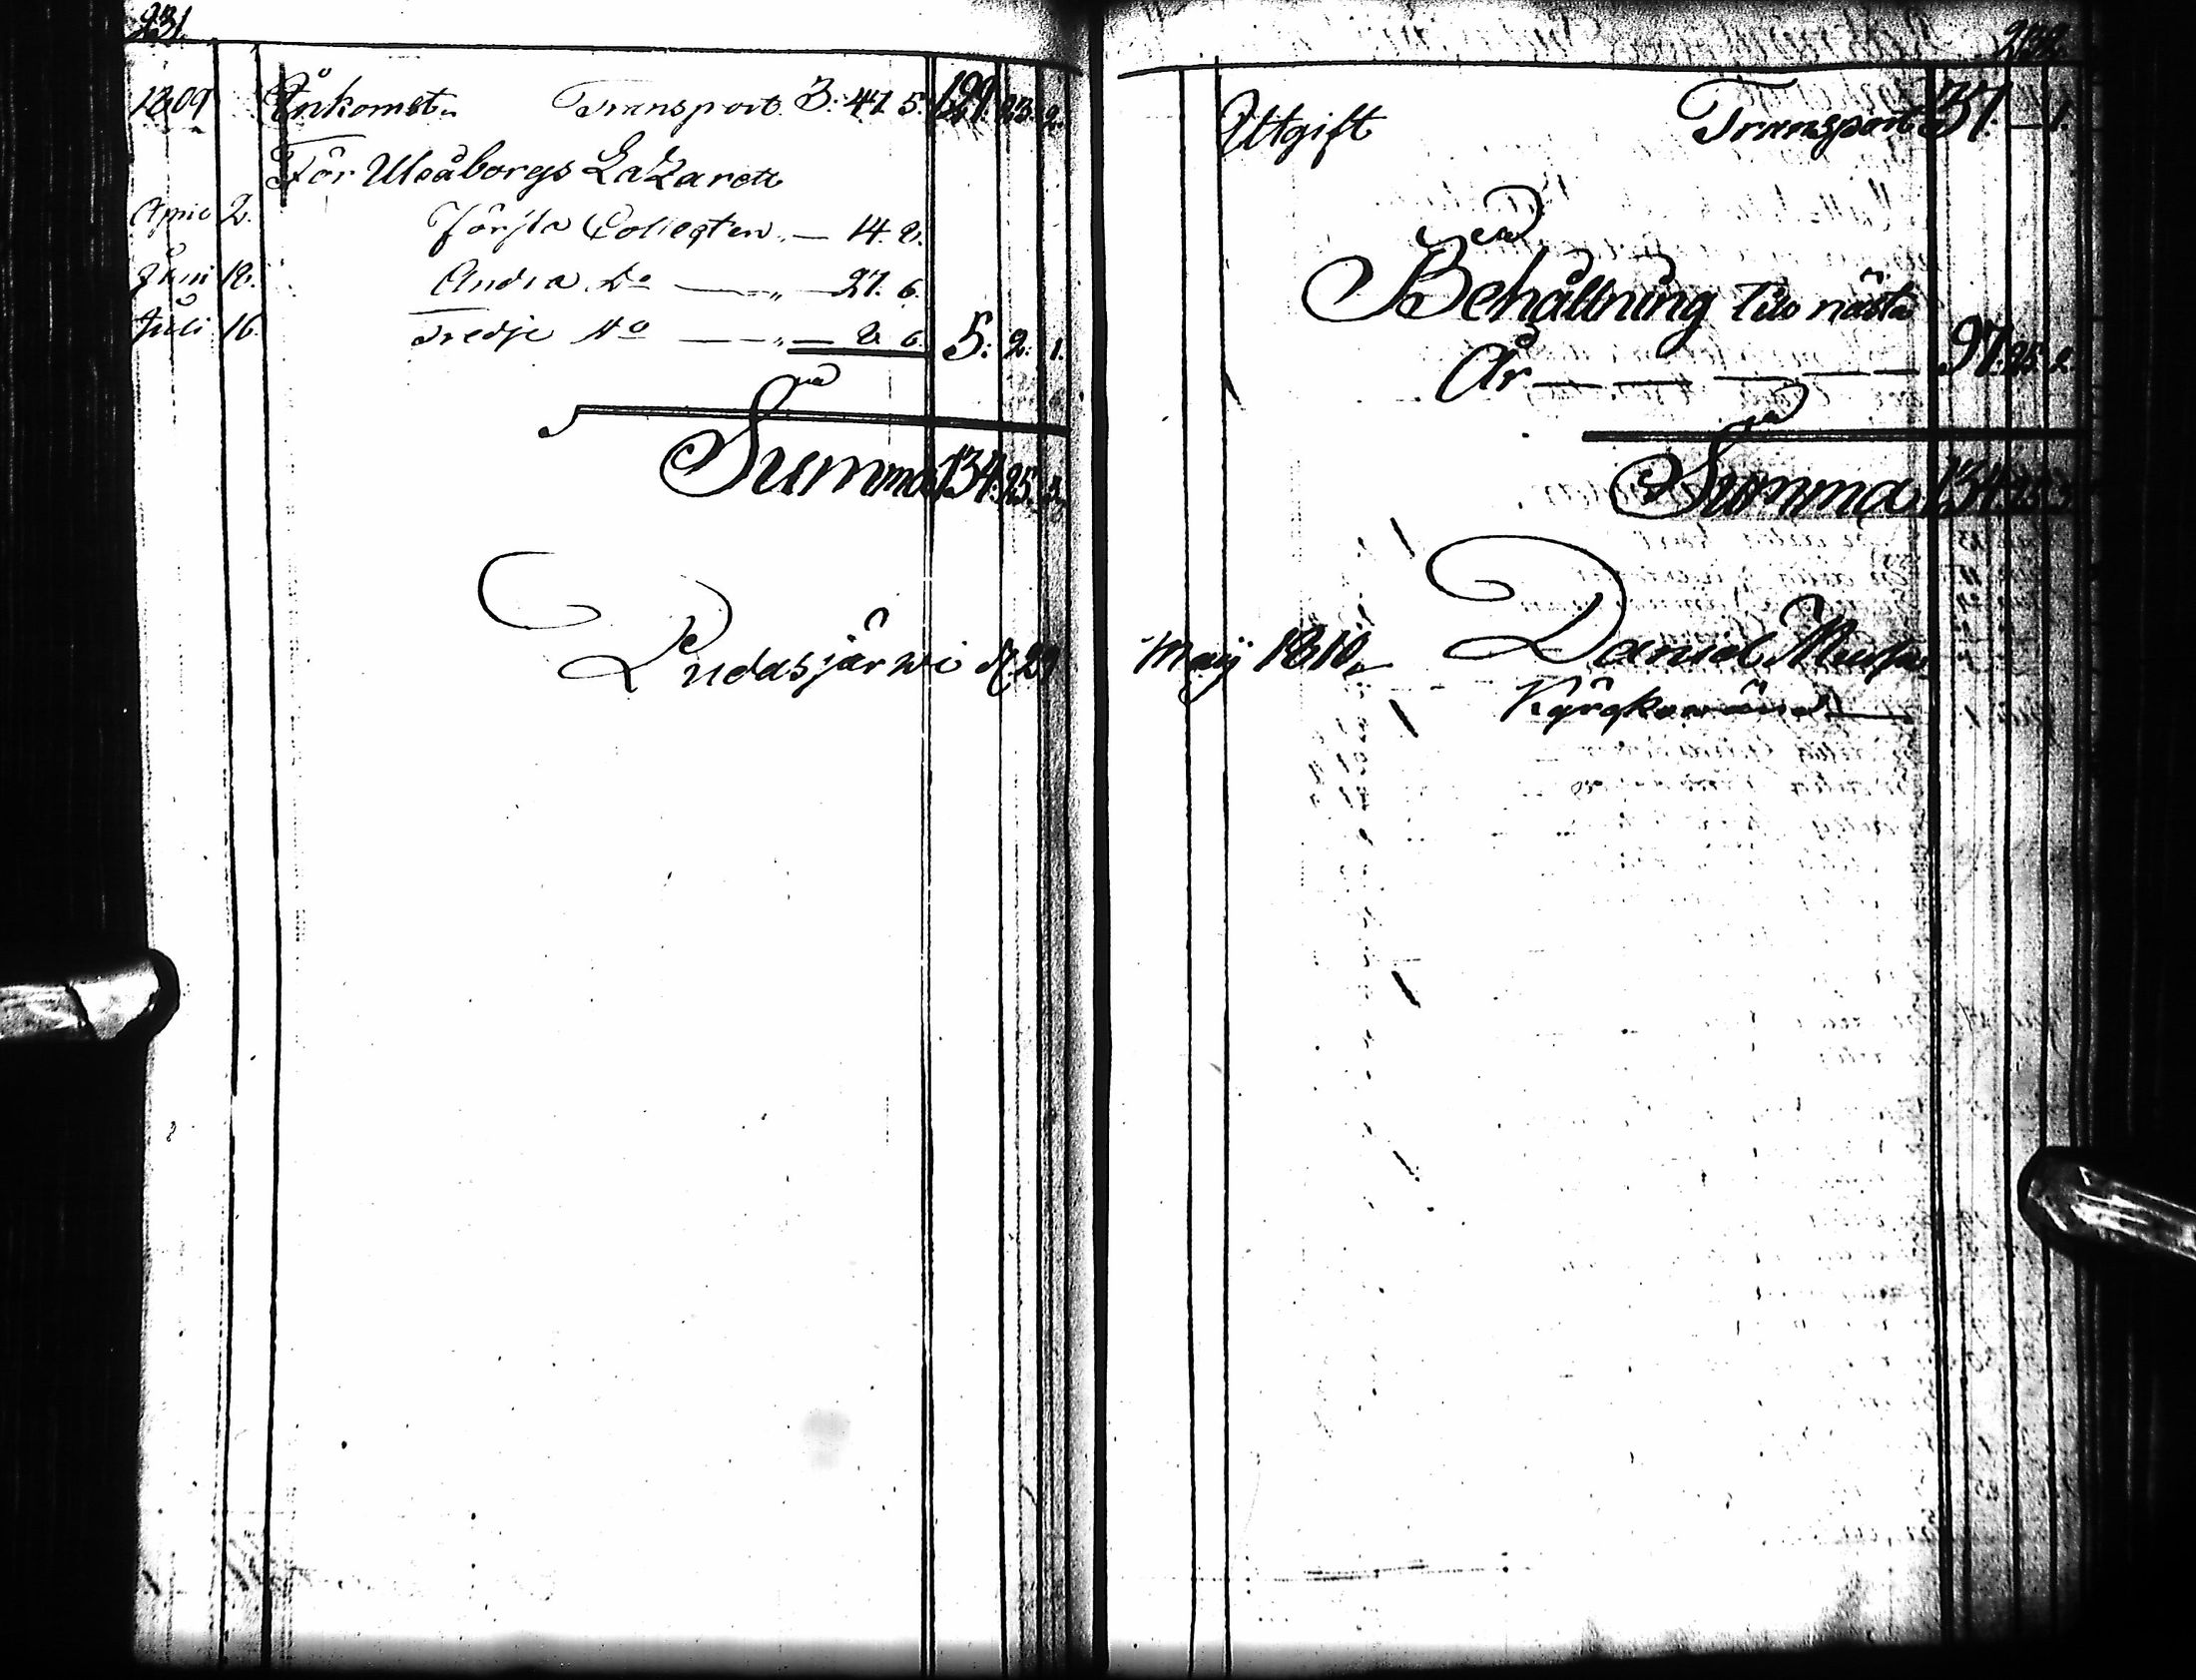 231.
1809 Inkomst. Transport. 3: 47. 5. 129. 23. 2.
För Uleåborgs LaZarett
April 2. Första Collegten. — 14. 2.
Juni 18. Andra Do — „ — 27. 6.
Juli 16. Tredje do — „ — 8. 6. 5: 2: 1.
Summa 134. 25. 3.
Pudasjärwi d. 29
232.
Utgift Transport 37. — 1.
Behållning Till nästa
År — — — — 97. 25. 2.
Summa 134. 25. 3.
Maij 1810. Daniel